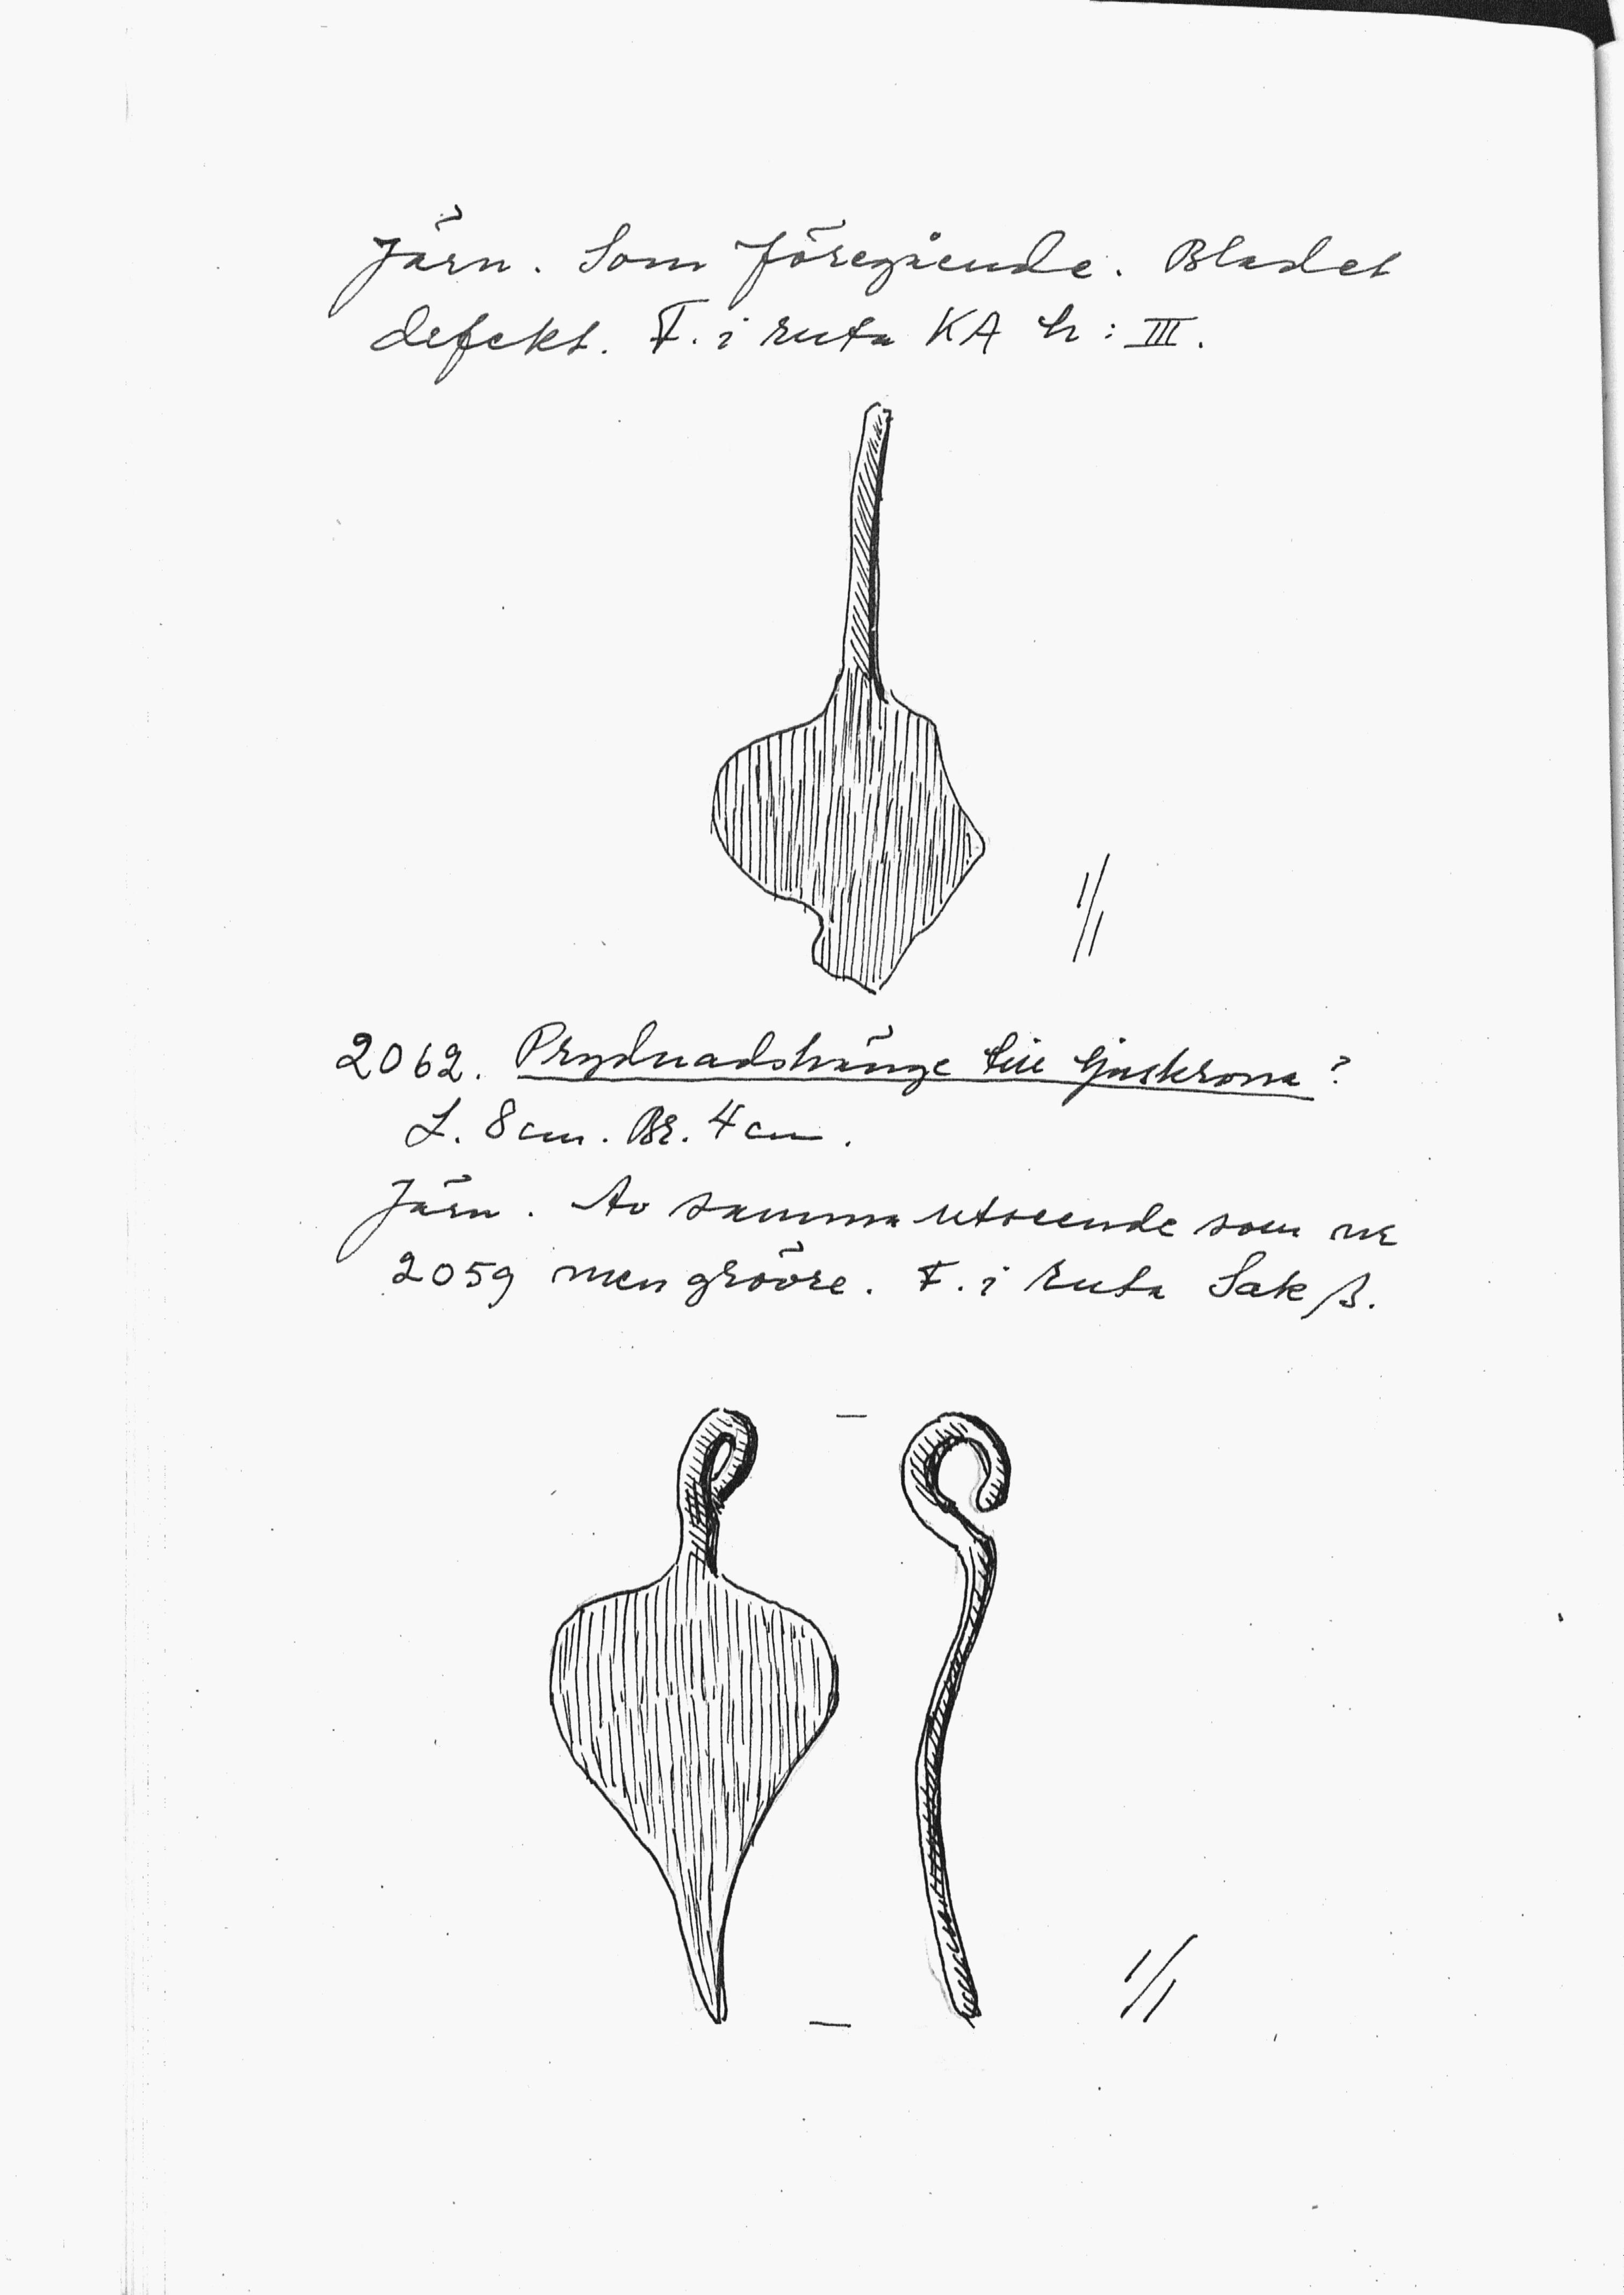 Järn. Som föregående. Bladet
defekt. F. i ruta KA h: III.
1/1
2062. Prydnadshänge till ljuskrona?
L. 8 cm. Br. 4 cm.
Järn. Av samma utseende som nr
2059 men grövre. F. i ruta Sak β.
1/1